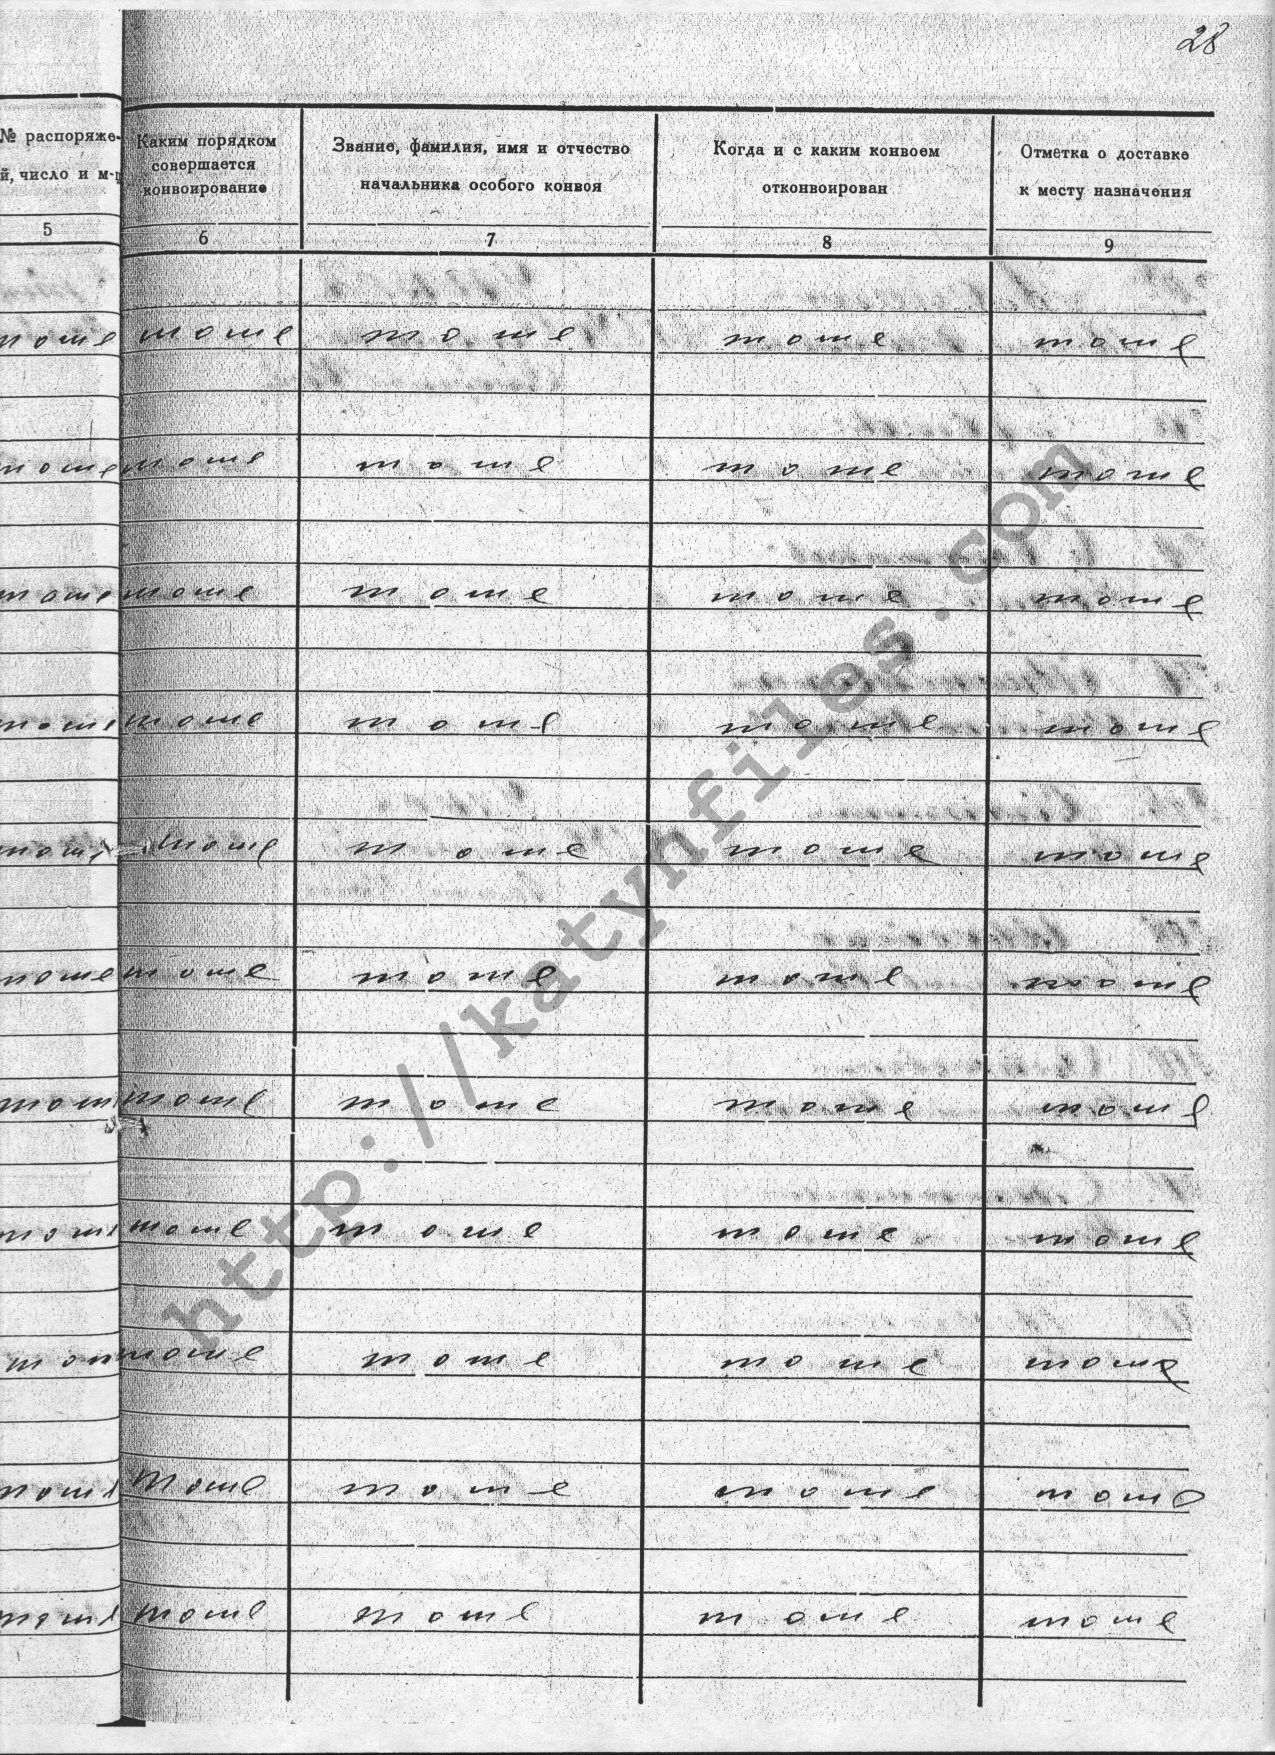 28
№ распоряже-
й, число и м-ц
5
Каким порядком
совершается
конвоирование
6
Звание, фамилия, имя и отчество
начальника особого конвоя
7
Когда и с каким конвоем
отконвоирован
8
Отметка о доставке
к месту назначения
9
тоже тоже тоже тоже тоже
тоже тоже тоже тоже тоже
тоже тоже тоже тоже тоже
тоже тоже тоже тоже тоже
тоже тоже тоже тоже тоже
тоже тоже тоже тоже тоже
тоже тоже тоже тоже тоже
тоже тоже тоже тоже тоже
тоже тоже тоже тоже тоже
тоже тоже тоже тоже тоже
тоже тоже тоже тоже тоже
http://katynfiles.com